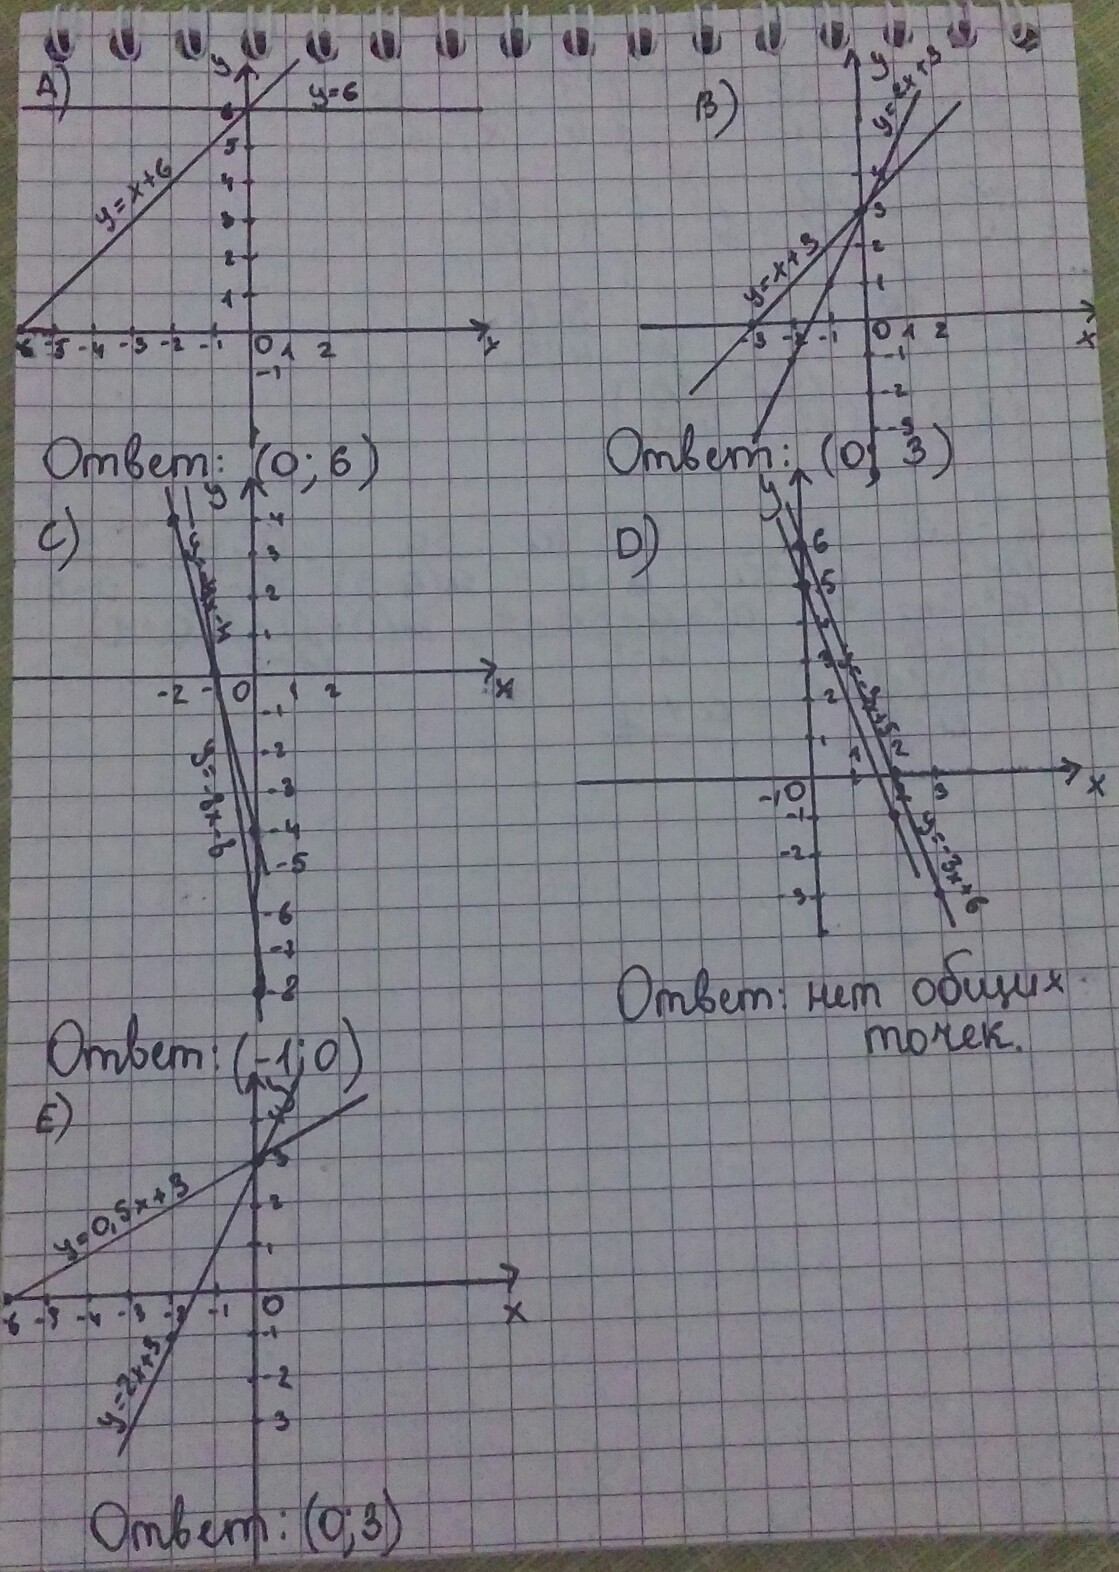 A)
y
y=6
6
5
4
3
2
1
y=x+6
-6 -5 -4 -3 -2 -1 0 1 2
x
-1
Ответ: (0; 6)
B)
y
y=2x+3
4
3
2
1
y=x+3
-3 -2 -1 0 1 2
x
-1
-2
-3
Ответ: (0; 3)
C)
y
4
3
2
1
y=-4x-4
-2 - 0 1 2
x
-1
-2
-3
-4
-5
-6
-7
-8
y=-8x-8
Ответ: (-1; 0)
D)
y
6
5
3
2
1
y=-3x+5
-1 0
2
3
x
-1
-2
-3
y=-3x+6
Ответ: нет общих
точек.
E)
y
3
2
1
y=0,5x+3
-6 -5 -4 -3 -2 -1 0
x
-1
-2
3
y=2x+3
Ответ: (0; 3)